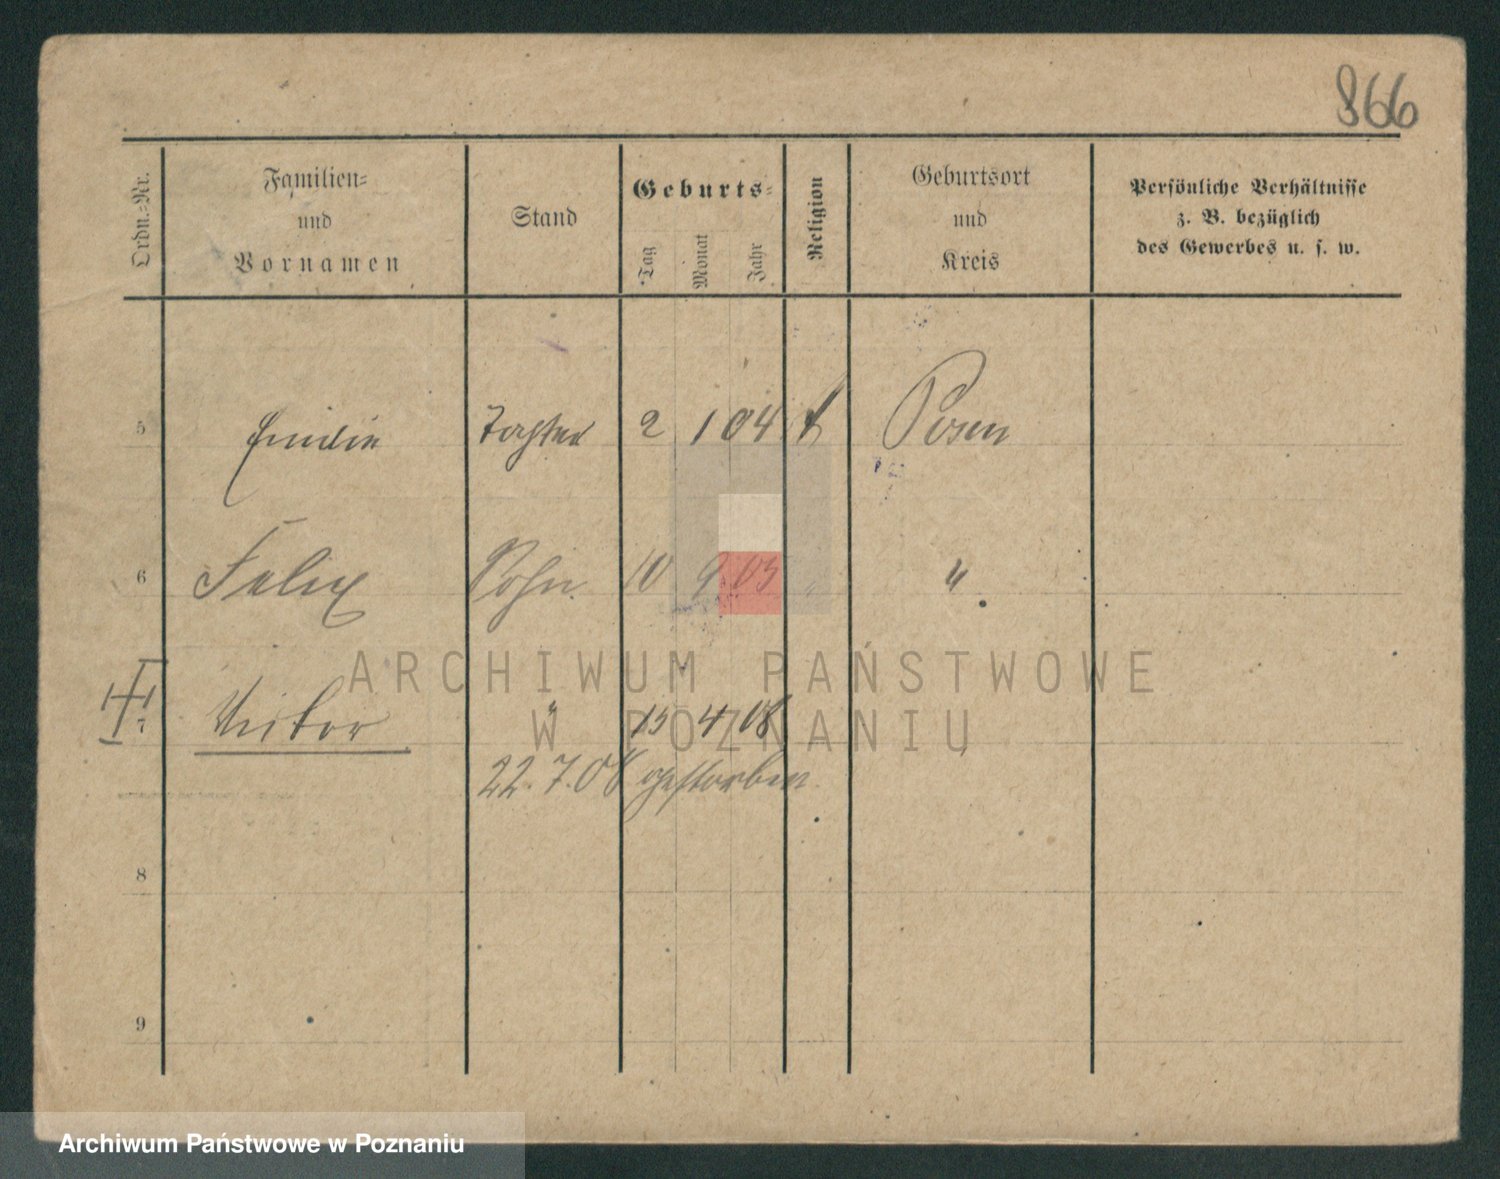 866
Ordn.=Nr.
Familien=
und
Vornamen
Stand
Geburts=
Tag
Monat
Jahr
Religion
Geburtsort
und
Kreis
Persönliche Verhältnisse
z. B. bezüglich
des Gewerbes u. s. w.
5 Emilie Tochter 2 1 04 k Posen
6 Felix Sohn 10 9 05 " "
7 Viktor " 15 4 08
22.7.08 gestorben
8
9
ARCHIWUM PAŃSTWOWE
W POZNANIU
Archiwum Państwowe w Poznaniu